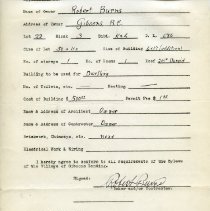 Name of Owner Robert Burns
Address of Owner Gibsons B.C.
Lot 22 Block 3 Subd. D.L. 686
Size of Lot Size of Building
No. of storeys 1 No. of Rooms 1 Roof
Building to be used for Dwelling
No. of Toilets, etc. Heating
Cost of Building $500 Permit Fee $1.00
Name & Address of Architect Owner
Name & Address of Contractor Owner
Brickwork, Chimneys, etc.
Electrical Work & Wiring
I hereby agree to conform to all requirements of the Bylaws
of the Village of Gibsons Landing.
Signed: Robert Burns